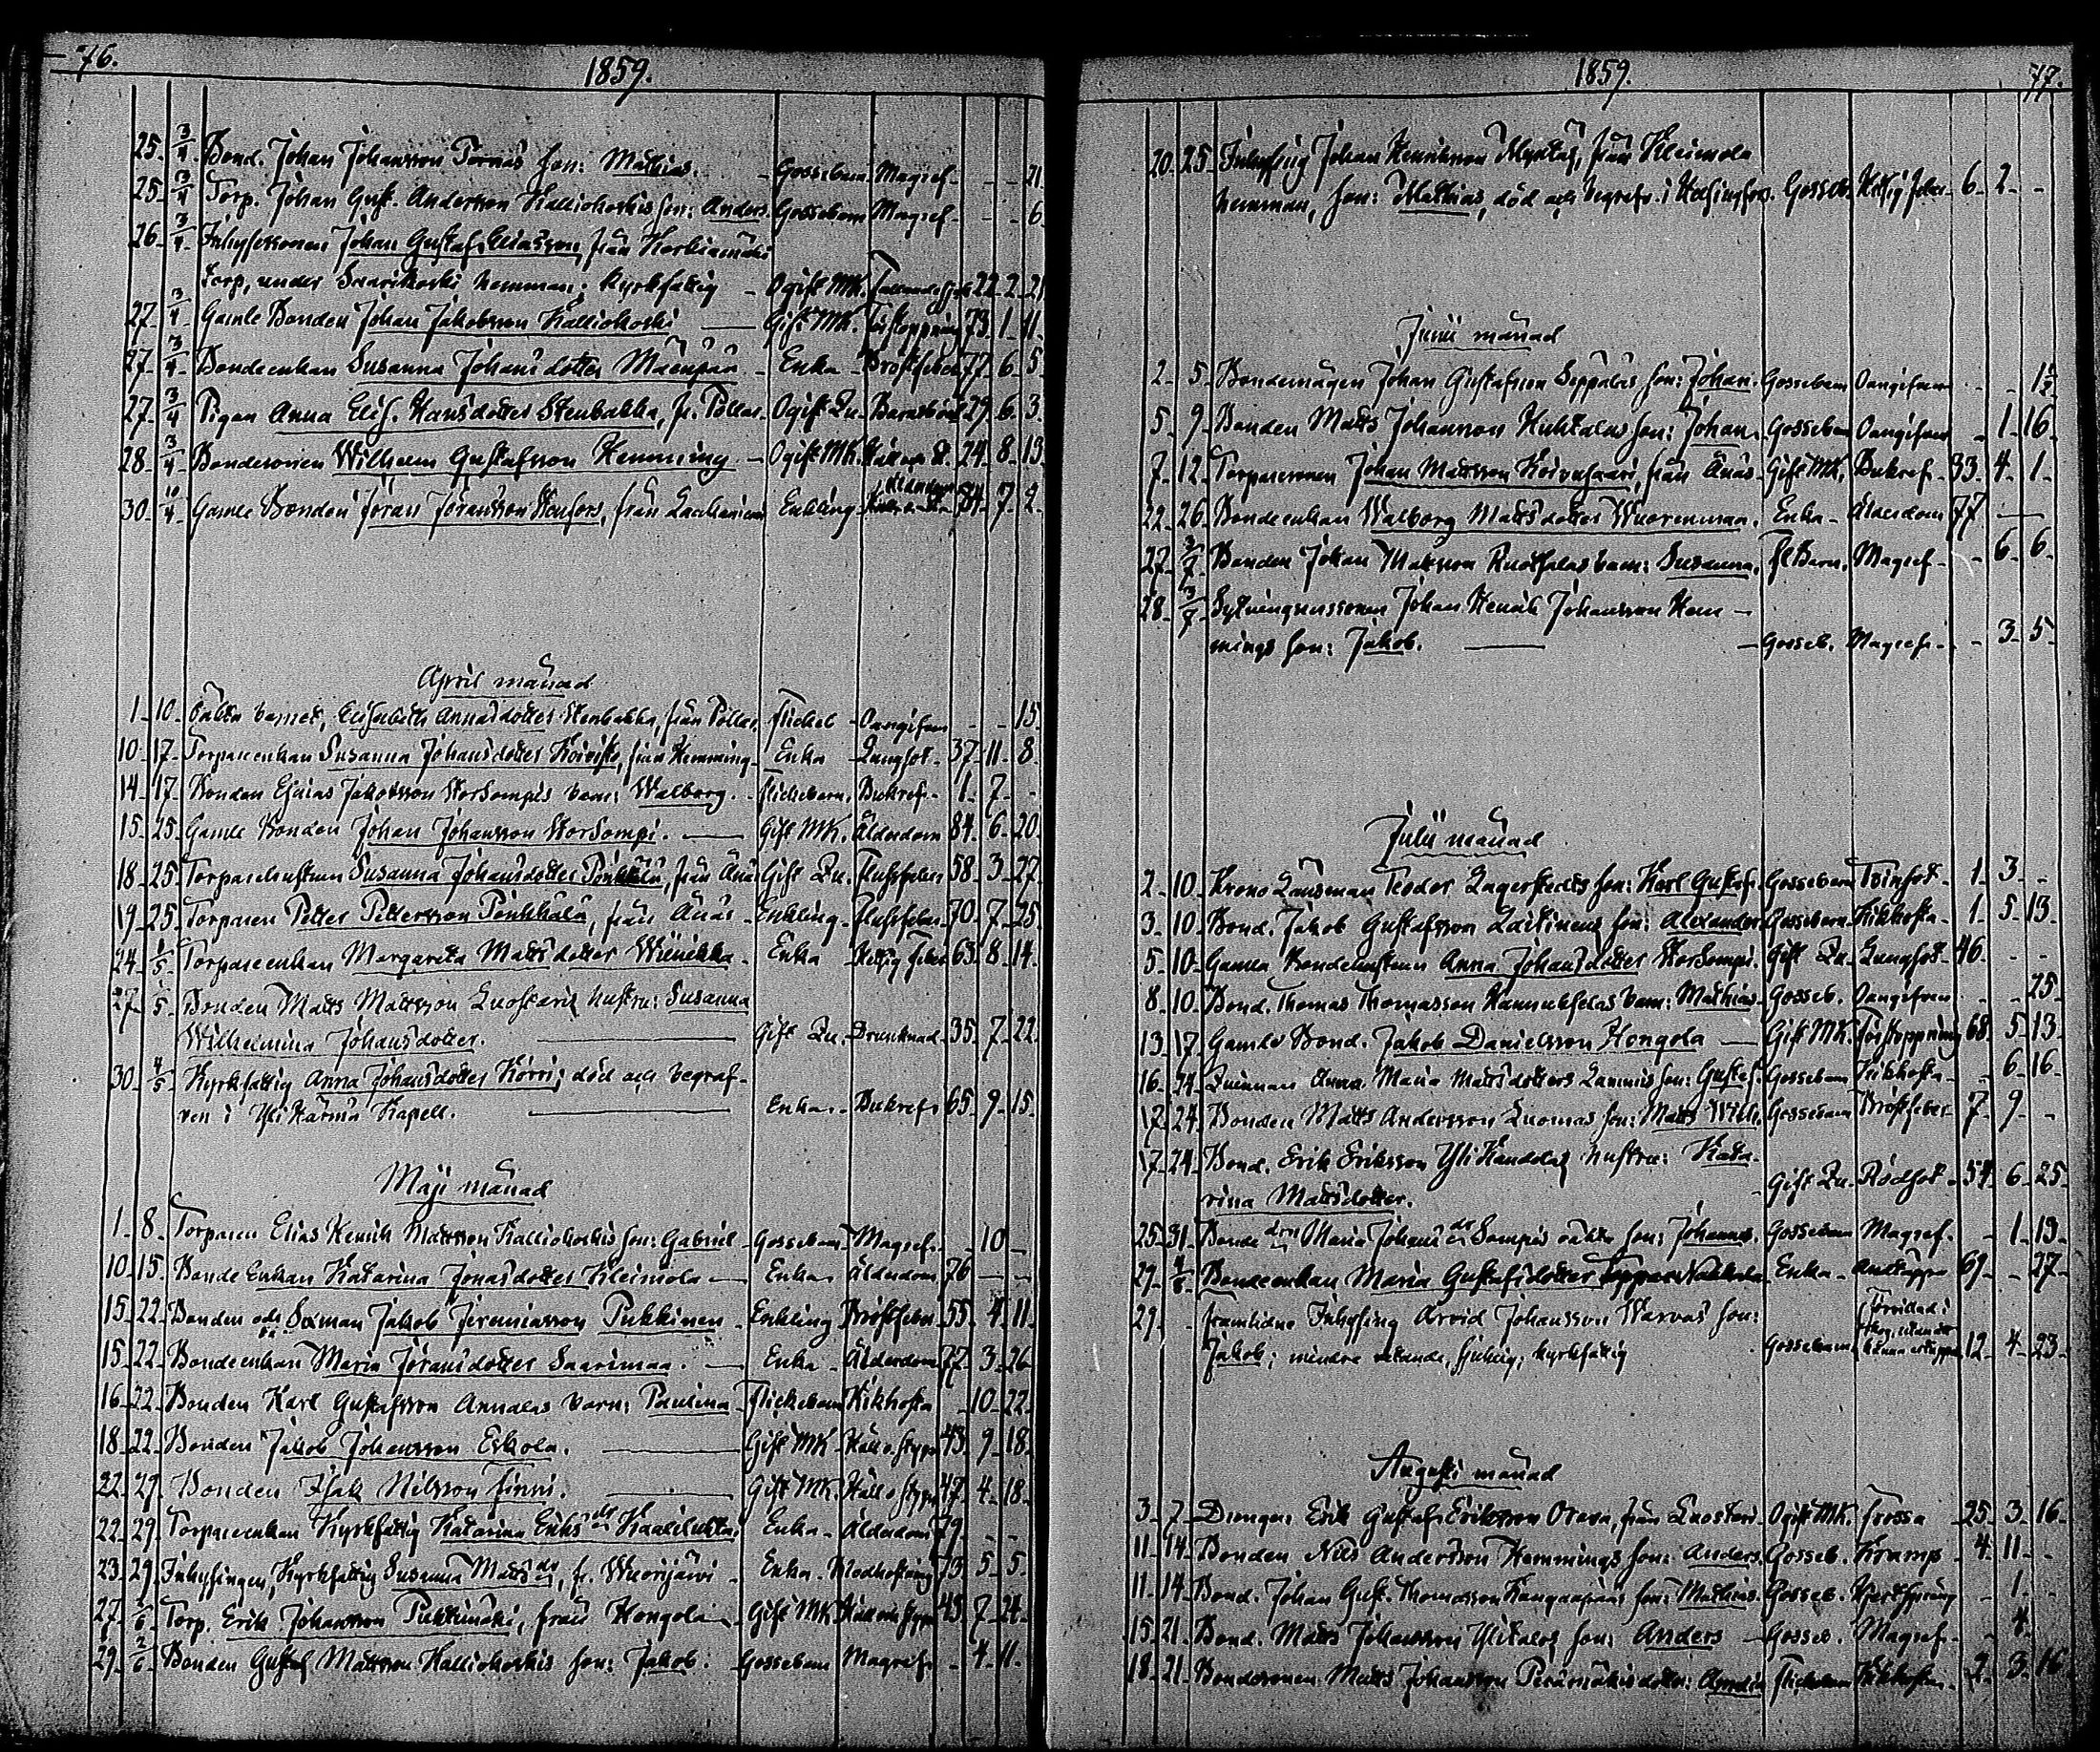 76.
1859.
25. 3/4 Bond. Johan Johansson Pernäs son: Mathias. Gossebarn Magref. 21.
25. 3/4 Torp. Johan Gust. Andersson Kalliokoskis son: Anders. Gossebarn Magref. 6.
26. 3/4 Inhysessonen Johan Gustaf Eliasson, från Korkiamäki
torp, under Saarikoski hemman; kyrkfattig Ogift MK. 22. 2. 21
27. 3/4 Gamle Bonden Johan Jakobsson Kalliokoski Gift MK. Förstoppning 73. 1. 11.
27. 3/4 Bondeenkan Susanna Johansdotter Mäenpää Enka Bröstfeber 77. 6. 5.
27. 3/4 Pigan Anna Elis. Hansdotter Stenbakka, fr. Pollari Ogift Qu. Barnsbörd 29. 6. 3.
28. 3/4 Bondesonen Wilhelm Gustafsson Hemming Ogift MK. Håll och St. 24. 8. 13.
30. 10/4 Gamle Bonden Jöran Jöransson Stenfors, från Enkling 84. 7. 2.
April månad
1. 10. Oäkta barnet, Elisabeth Annasdotter Stenbakka, från Pollari Flickeb. Oangifven 15.
10. 17. Torpareenkan Susanna Johansdotter Koivisto, från Hemming Enka Lungsot. 37. 11. 8.
14. 17. Bonden Esaias Jakobsson Storsompis barn: Walborg. Flickebarn. Bukref. 1. 7.
15. 25. Gamle Bonden Johan Johansson Storsompi. Gift MK. Ålderdom 84. 6. 20.
18. 25. Torparehustrun Susanna Johansdotter Pönkkälä, från Ånäs Gift Qu. Flussfeber 58. 3. 27.
19. 25. Torparen Petter Pettersson Pönkkälä, från Ånäs Enkling. Flussfeber 70. 7. 25.
24. 1/5 Torpareenkan Margareta Mattsdotter Wiinikka Enka Hettig feber 63. 8. 14.
27. 1/5 Bonden Matts Mattsson Luostaris hustru: Susanna
Wilhelmina Johansdotter. Gift Qu. Drunknad 35. 7. 22.
30. 4/5 Kyrkfattig Anna Johansdotter Körri; död och begraf-
ven i Yli Härmä Kapell. Enka. Bukref. 65. 9. 15.
Maji månad
1. 8. Torparen Elias Henrik Mattsson Kalliokoskis son: Gabriel Gossebarn Magref. 10
10. 15. Bonde Enkan Katarina Jonasdotter Kleimola Enka Ålderdom 76
15. 22. Bonden och Sexman Jakob Jeremiasson Pukkinen Enkling Bröstfeber 55. 4. 11.
15. 22. Bondeenkan Maria Jöransdotter Saarimaa. Enka Ålderdom 77. 3. 26.
16. 22. Bonden Karl Gustafsson Annalas barn: Paulina Flickebarn Kikhosta 10. 22.
18. 22. Bonden Jakob Johansson Eskola. Gift MK. Håll o. styng 43. 9. 18.
22. 29. Bonden Isak Nilsson Finni. Gift MK. Håll o styng 47. 4. 18.
22. 29. Torpareenkan Kyrkfattig Katarina Eriksdr Enka Ålderdom 79.
23. 29. Inhysingen, Kyrkfattig Susanna Mattsdr, fr. Wuorijärvi Enka. Blodhostning 73. 5. 5.
27. 2/6 Torp. Erik Johansson, från Hongola Gift MK. Håll och styng 45. 7. 24.
29. 2/6 Bonden Gustaf Mattsson Kalliokoskis son: Jakob. Gossebarn Magref. 4. 11.
1859.
77.
20. 25. Inhysing Johan Henriksson Myntas, från Kleimola
hemman, son: Mathias, död och begrafv. i Helsingfors. Gosseb. Hettig feber 6. 2.
Junii månad
2. 5. Bondemågen Johan Gustafsson Seppälas son: Johan. Gossebarn Oangifven 1/2
5. 9. Bonden Matts Johansson Huhtalas son: Johan. Gossebarn Oangifven 1. 16.
7. 12. Torparesonen Johan Mattsson Koivusaari, från Ånäs Gift MK. Bukref. 33. 4. 1.
22. 26. Bondeenkan Walborg Mattsdotter Wuorenmaa. Enka Ålderdom 77
27. 3/7 Bonden Johan Mattsson Ruotsalas barn: Susanna. Fl. Barn. Magref. 6. 6.
28. 3/7 Sytningssonen Johan Henrik Johansson Hem-
mings son: Jakob. Gosseb. Magref. 3. 5.
Julii månad
2. 10. Krono Länsman Teodor Lagerstedts son: Karl Gustaf. Gossebarn Tvinsot 1. 3.
3. 10. Bond. Jakob Gustafsson Laitinens son: Alexander Gossebarn Kikhosta 1. 5. 13.
5. 10. Gamla Bondehustrun Anna Johansdotter Storsompi. Gift Qu. Lungsot 46.
8. 10. Bond. Thomas Thomasson Hannukselas barn: Mathias Gosseb. Oangifven 25.
13. 17. Gamle Bond. Jakob Danielsson Hongola Gift MK. Förstoppning 68. 5. 13.
16. 24. Quinnan Anna Maria Mattsdotters Lammis son: Gustaf. Gossebarn Kikhosta 6. 16.
17. 24. Bonden Matts Andersson Luomas son: Matts Wilh. Gossebarn Bröstfeber 7. 9.
17. 24. Bond. Erik Eriksson Yli Handolas hustru: Kata-
rina Mattsdotter. Gift Qu. Rödsot 54. 6. 25.
25. 31. Bondedotren Maria Johansdr Sompis oäkta son: Johannes. Gossebarn Magref. 1. 13.
29. Bondeenkan Maria Gustafsdotter Enka 69. 27.
29. framlidne Inhysing Arvid Johansson Warvas son:
Jakob; mindre vetande, sjuklig; kyrkfattig Gossebarn 12. 4. 23.
Augusti månad
3. 7. Drengen Erik Gustaf Eriksson Orava, från Luostari Ogift MK. Frossa 25. 3. 16.
11. 14. Bonden Nils Andersson Hemmings son: Anders Gosseb. Kramp 4. 11.
11. 14. Bond. Johan Gust. Thomasson son: Mathias Gosseb. Hjertsprång 1.
15. 21. Bond. Matts Johansson Ylitalos son: Anders Gosseb. Magref. 4.
18. 21. Bondesonen Matts Johansson Perämäkis dotter: Flickebarn Kikhosta 2. 3. 16.